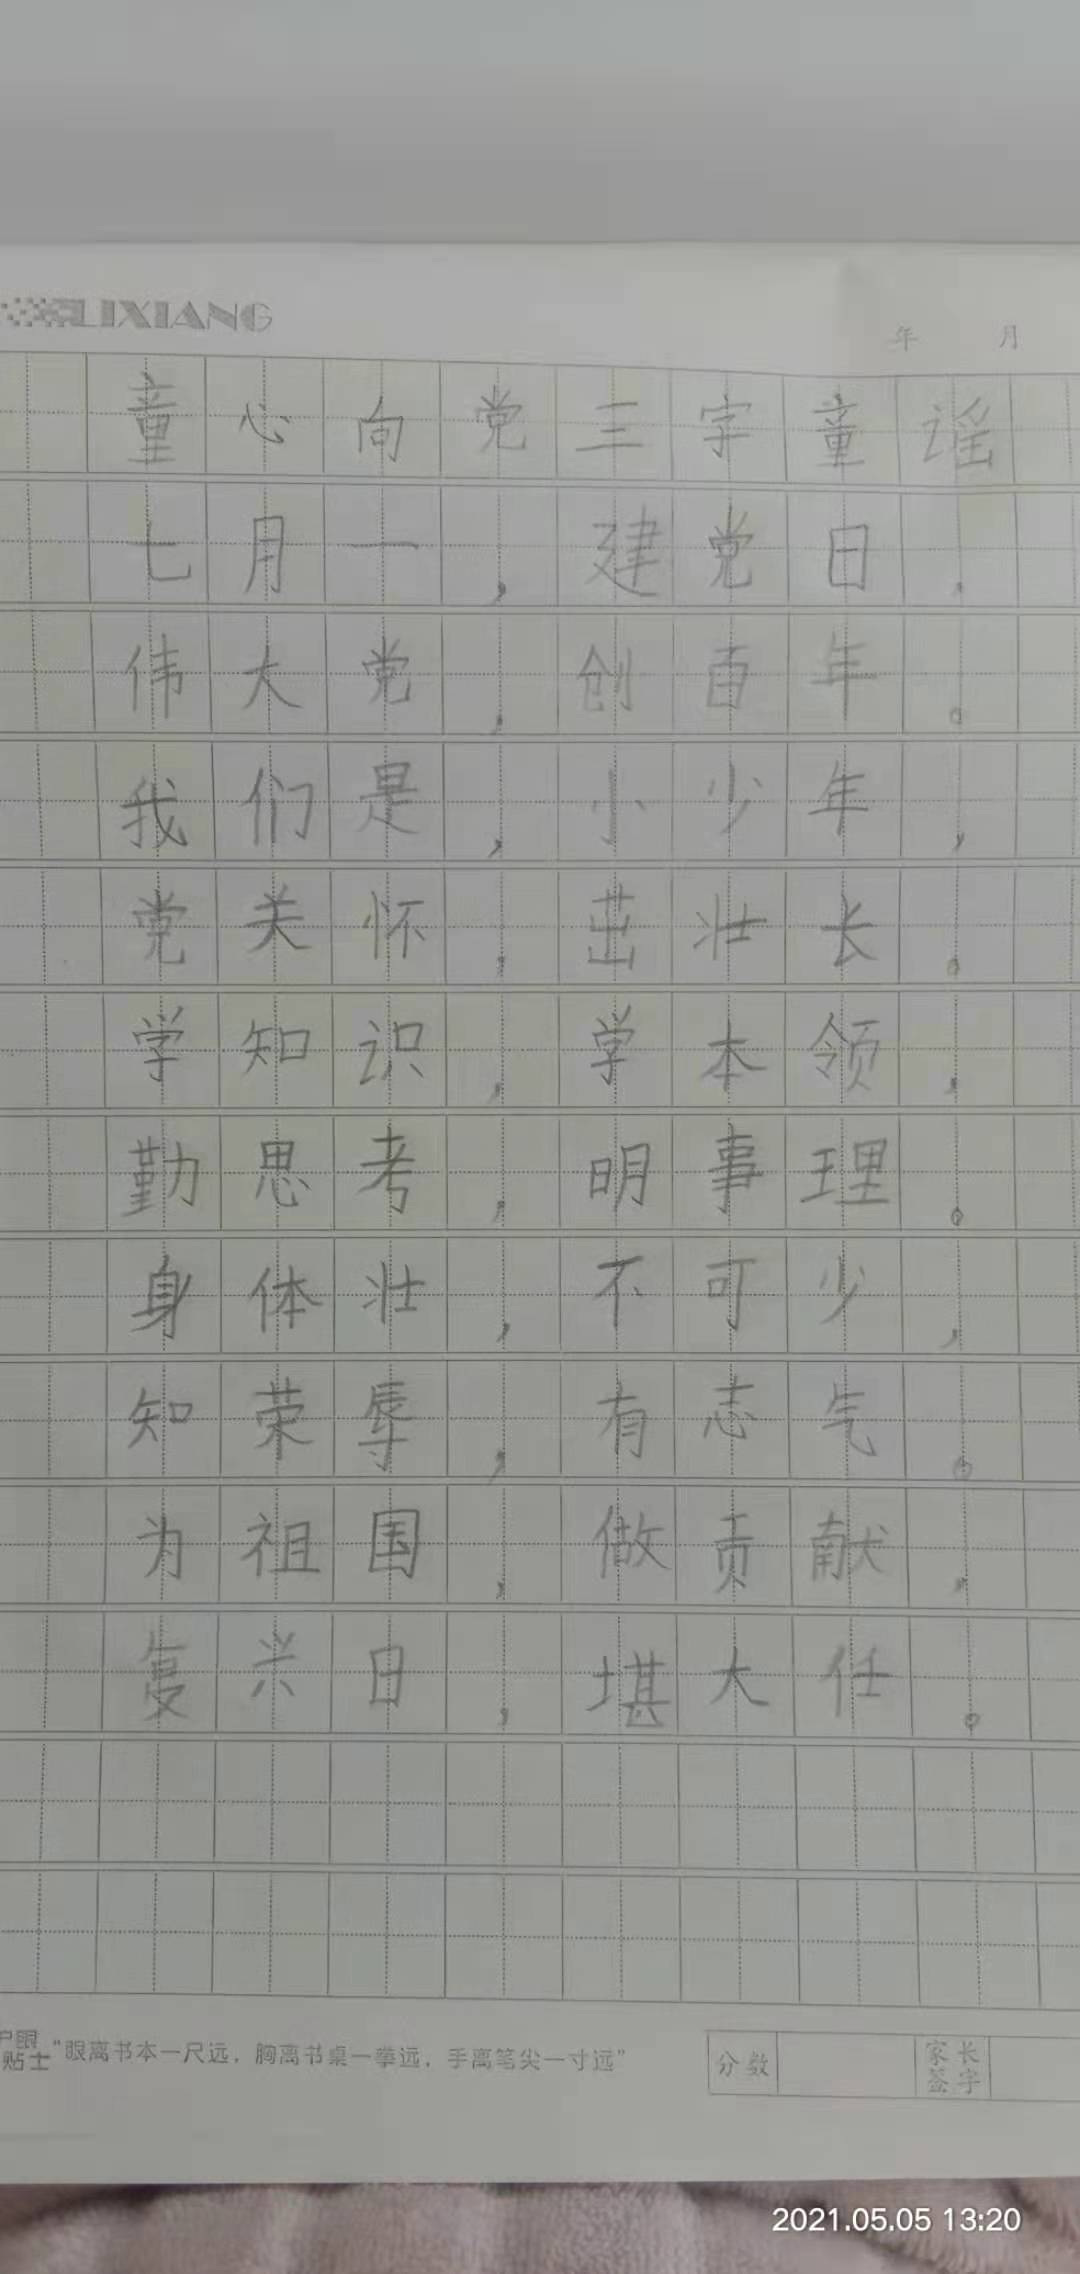 LIXIANG
年 月
童心向党三字童谣
七月一，建党日，
伟大党，创百年。
我们是，小少年，
党关怀，茁壮长。
学知识，学本领，
勤思考，明事理。
身体壮，不可少，
知荣辱，有志气。
为祖国，做贡献，
复兴日，堪大任。
护眼
贴士
"眼离书本一尺远，胸离书桌一拳远，手离笔尖一寸远"
分数
家长
签字
2021.05.05 13:20